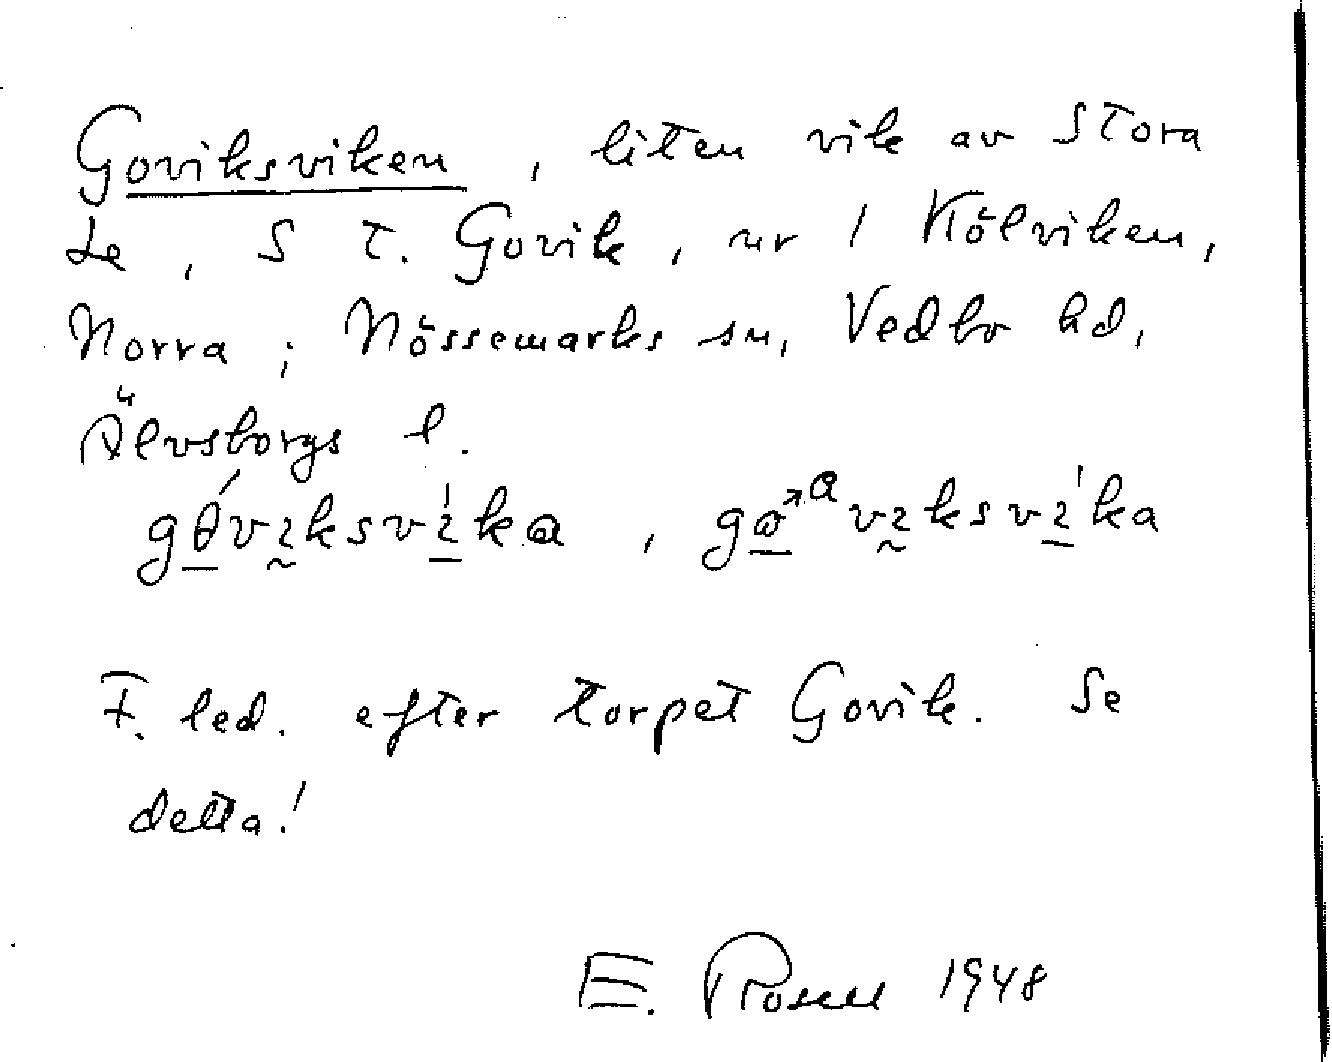 Goviksviken, liten vik av Stora
Le, S t. Govik, nr 1 Kölviken,
Norra; Nössemarks sn, Vedbo hd,
Älvsborgs l.
gɵ́viksvíka, go ͣviksvíka
F. led. efter torpet Govik. Se
detta!
E. Rosell 1948